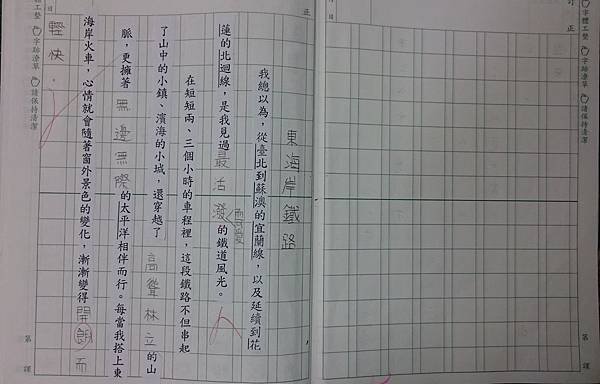 訂正
字體工整 字跡潦草 請保持清潔
第 課
正
東海岸鐵路
我總以為，從臺北到蘇澳的宜蘭線，以及延續到花
蓮的北迴線，是我見過最活潑可愛的鐵道風光。
在短短兩、三個小時的車程裡，這段鐵路不但串起
了山中的小鎮、濱海的小城，還穿越了高聳林立的山
脈，更擁著無邊無際的太平洋相伴而行。每當我搭上東
海岸火車，心情就會隨著窗外景色的變化，漸漸變得開朗而
輕快。
體工整 字跡潦草 請保持清潔
月 日
第 課